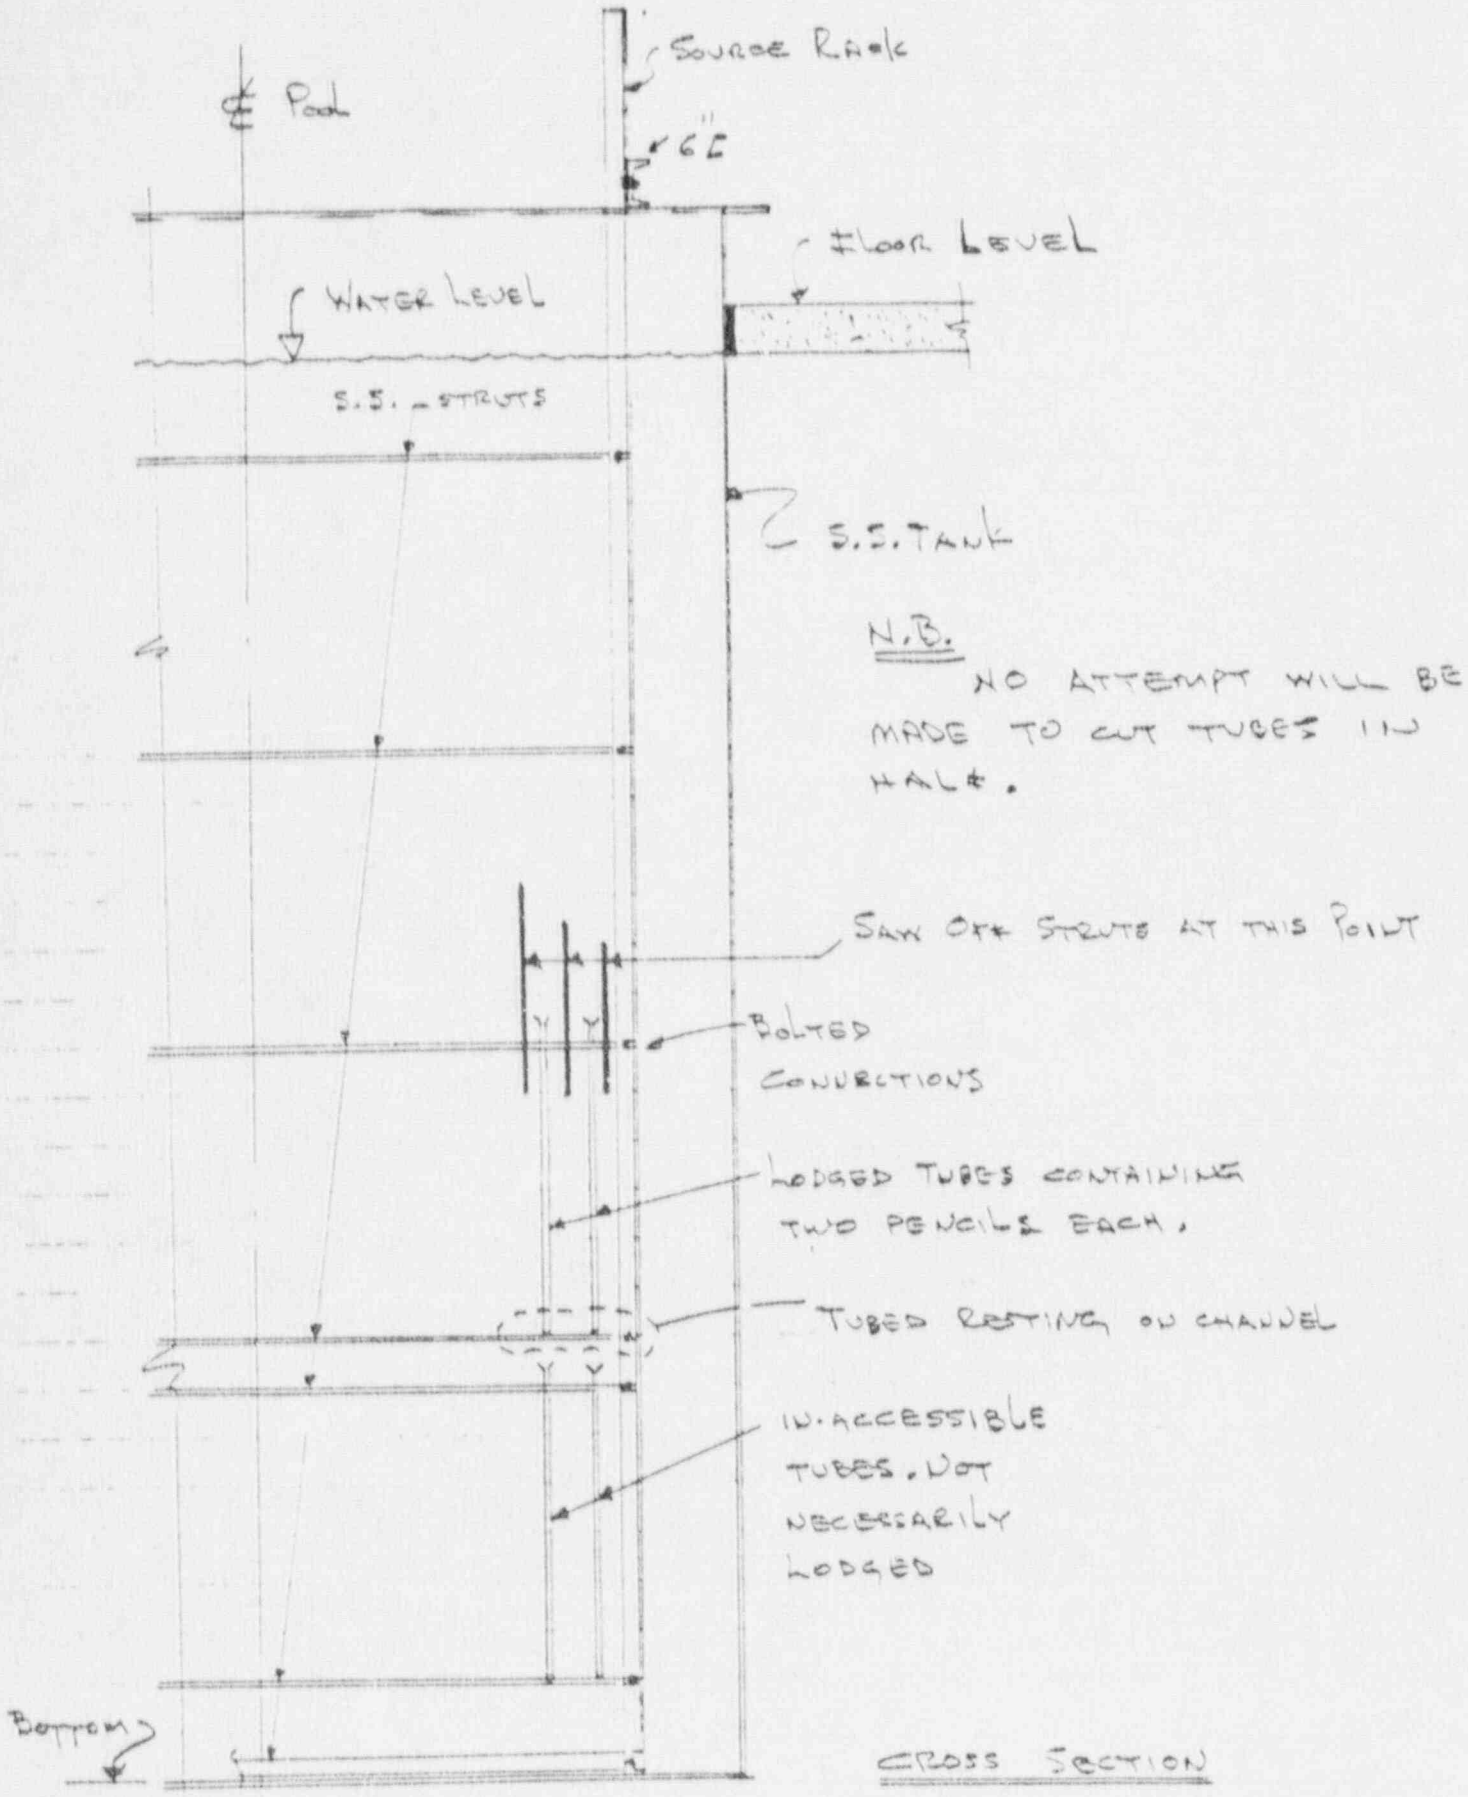 Source Rack
℄ Pool
6"[
Floor Level
Water Level
S.S. - STRUTS
S.S. TANK
N.B.
NO ATTEMPT WILL BE
MADE TO CUT TUBES IN
HALF.
SAW OFF STRUTS AT THIS POINT
BOLTED
CONNECTIONS
LODGED TUBES CONTAINING
TWO PENCILS EACH.
TUBED RESTING ON CHANNEL
IN-ACCESSIBLE
TUBES. NOT
NECESSARILY
LODGED
BOTTOM
CROSS SECTION